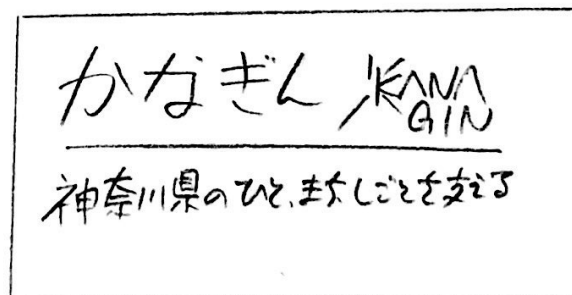 かなぎん KANA
GIN
神奈川県のひと、まち、しごとを支える